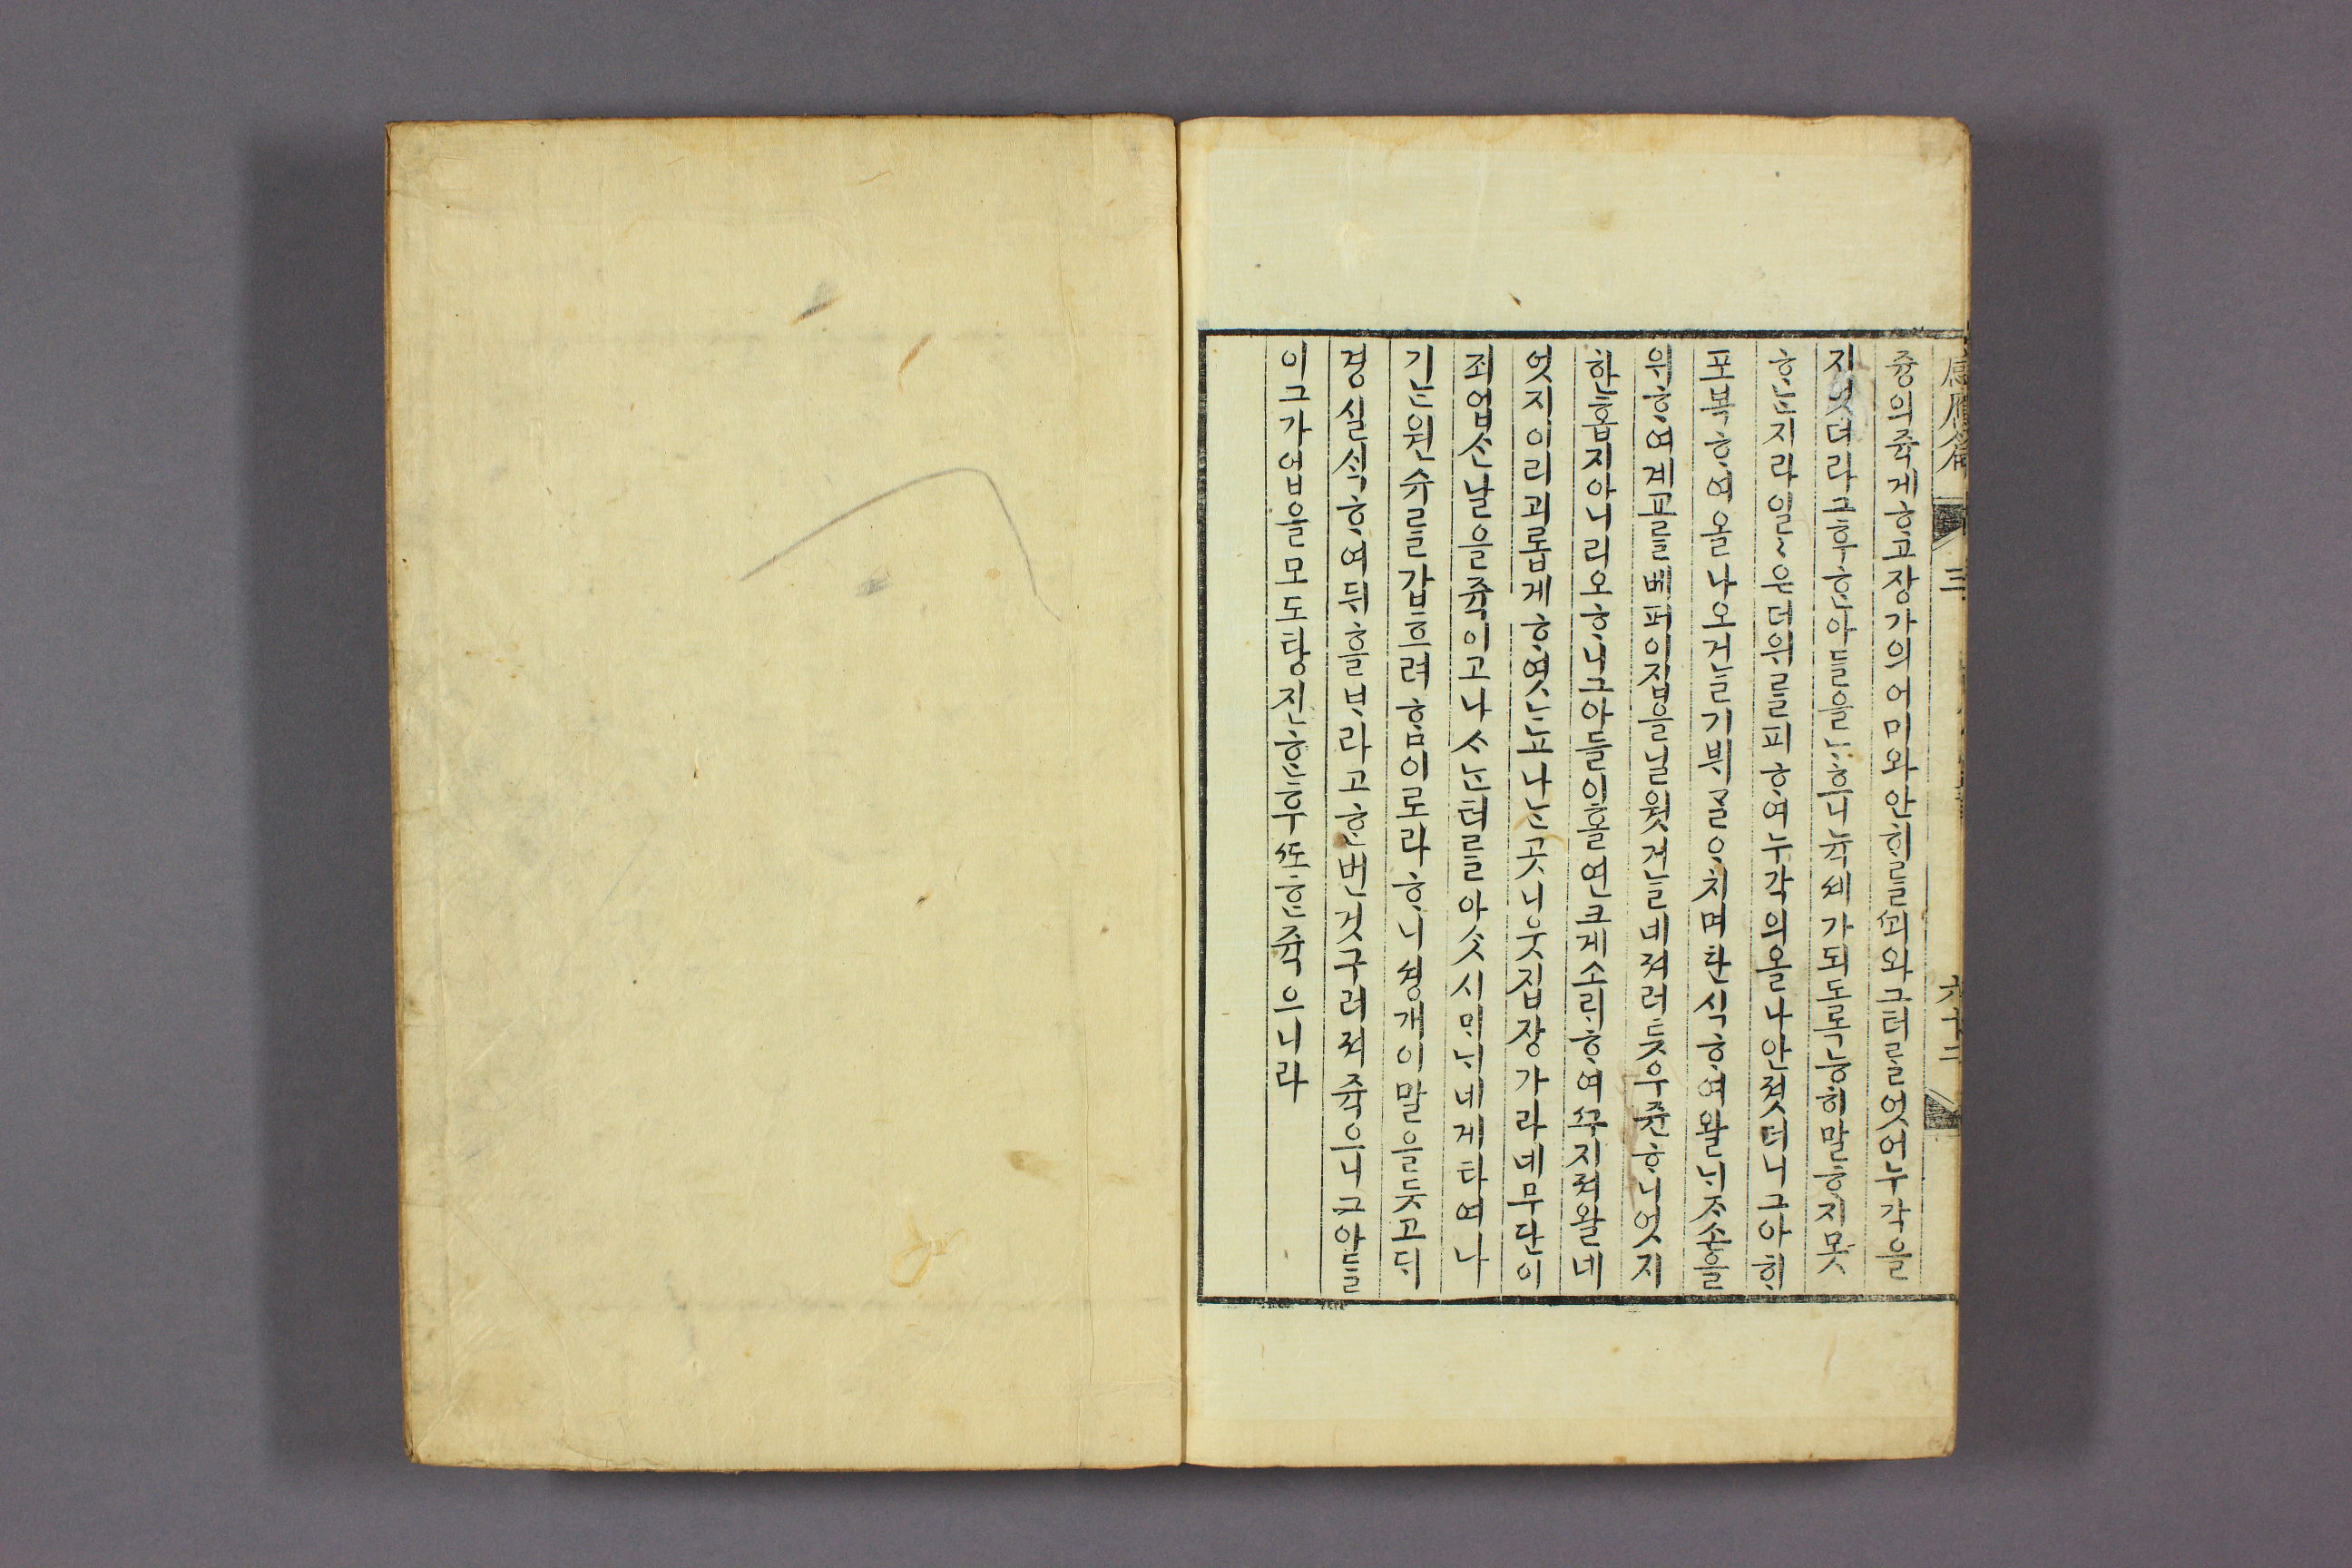 感應篇 三 六十二
즁의죽게ᄒᆞ고쟝가의어미와안ᄒᆡ를ᄭᅬ와그터를엇어누각을
지엇더라그후ᄒᆞᆫ아들을나ᄒᆞ니뉵셰가되도록능히말ᄒᆞ지못
ᄒᆞᄂᆞᆫ지라일〻은더위를피ᄒᆞ여누각의올나안졋더니그아ᄒᆡ
포복ᄒᆞ여올나오거ᄂᆞᆯ기뷔ᄆᆞᆯ으치며탄식ᄒᆞ여왈ᄂᆡᄌᆞ손을
위ᄒᆞ여계교를베퍼이집을닐웟거ᄂᆞᆯ네져러ᄐᆞᆺ우쥰ᄒᆞ니엇지
한홉지아니리오ᄒᆞ니그아들이홀연크게소ᄅᆡᄒᆞ여ᄭᅮ지져왈네
엇지이리괴롭게ᄒᆞ엿ᄂᆞᆫ뇨나ᄂᆞᆫ곳니웃집쟝가라네무단이
죄업ᄉᆞᆫ날을죽이고나ᄉᆞᄂᆞᆫ터를아ᄉᆞᆺ시ᄆᆡᄂᆡ네게타여나
기ᄂᆞᆫ원슈를갑흐려ᄒᆞᆷ이로라ᄒᆞ니쳥개이말을듯고ᄃᆡ
경실ᄉᆡᆨᄒᆞ여뒤흘ᄇᆞ라고ᄒᆞᆫ번것구러져죽으니그아들
이그가업을모도탕진ᄒᆞᆫ후ᄯᅩᄒᆞᆫ죽으니라